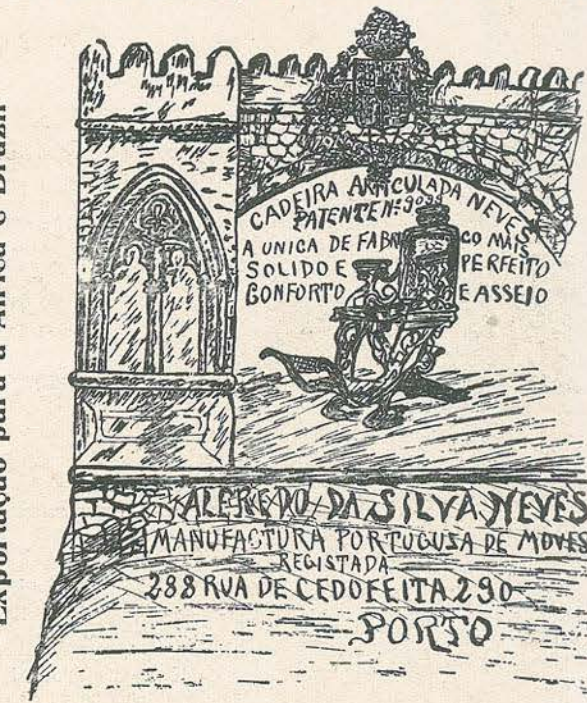 Exportação para a Africa e Brazil
CADEIRA ARTICULADA NEVES
PATENTE Nº 9098
A UNICA DE FABRICO MAIS
SOLIDO E PERFEITO
CONFORTO E ASSEIO
ALFREDO DA SILVA NEVES
MANUFACTURA PORTUGUSA DE MOVES
REGISTADA
288 RUA DE CEDOFEITA 290
PORTO